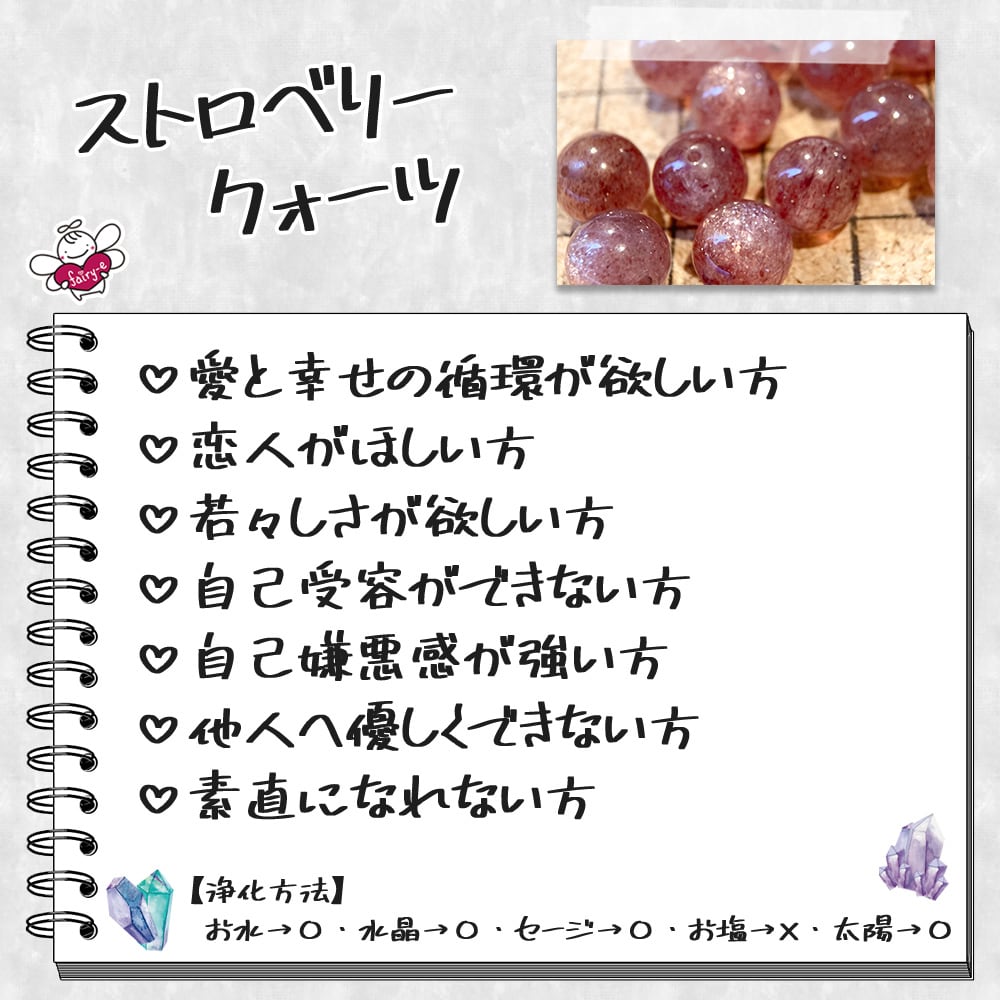 ストロベリー
クォーツ
fairy-e
♡愛と幸せの循環が欲しい方
♡恋人がほしい方
♡若々しさが欲しい方
♡自己受容ができない方
♡自己嫌悪感が強い方
♡他人へ優しくできない方
♡素直になれない方
【浄化方法】
お水→○・水晶→○・セージ→○・お塩→×・太陽→○